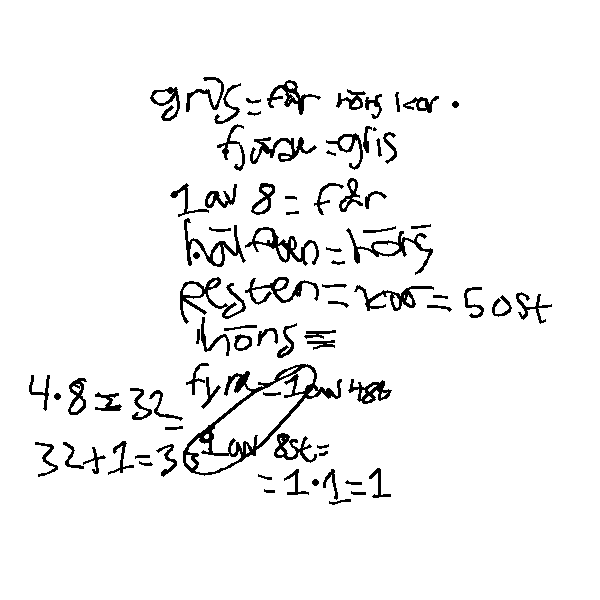 gris = får höns kor.
fjärde = gris
1 av 8 = får
hälften = höns
Resten = kor = 50st
höns =
fyra = 1 av 4st
4·8=32
32+1=33
1 av 8st=
=1·1=1